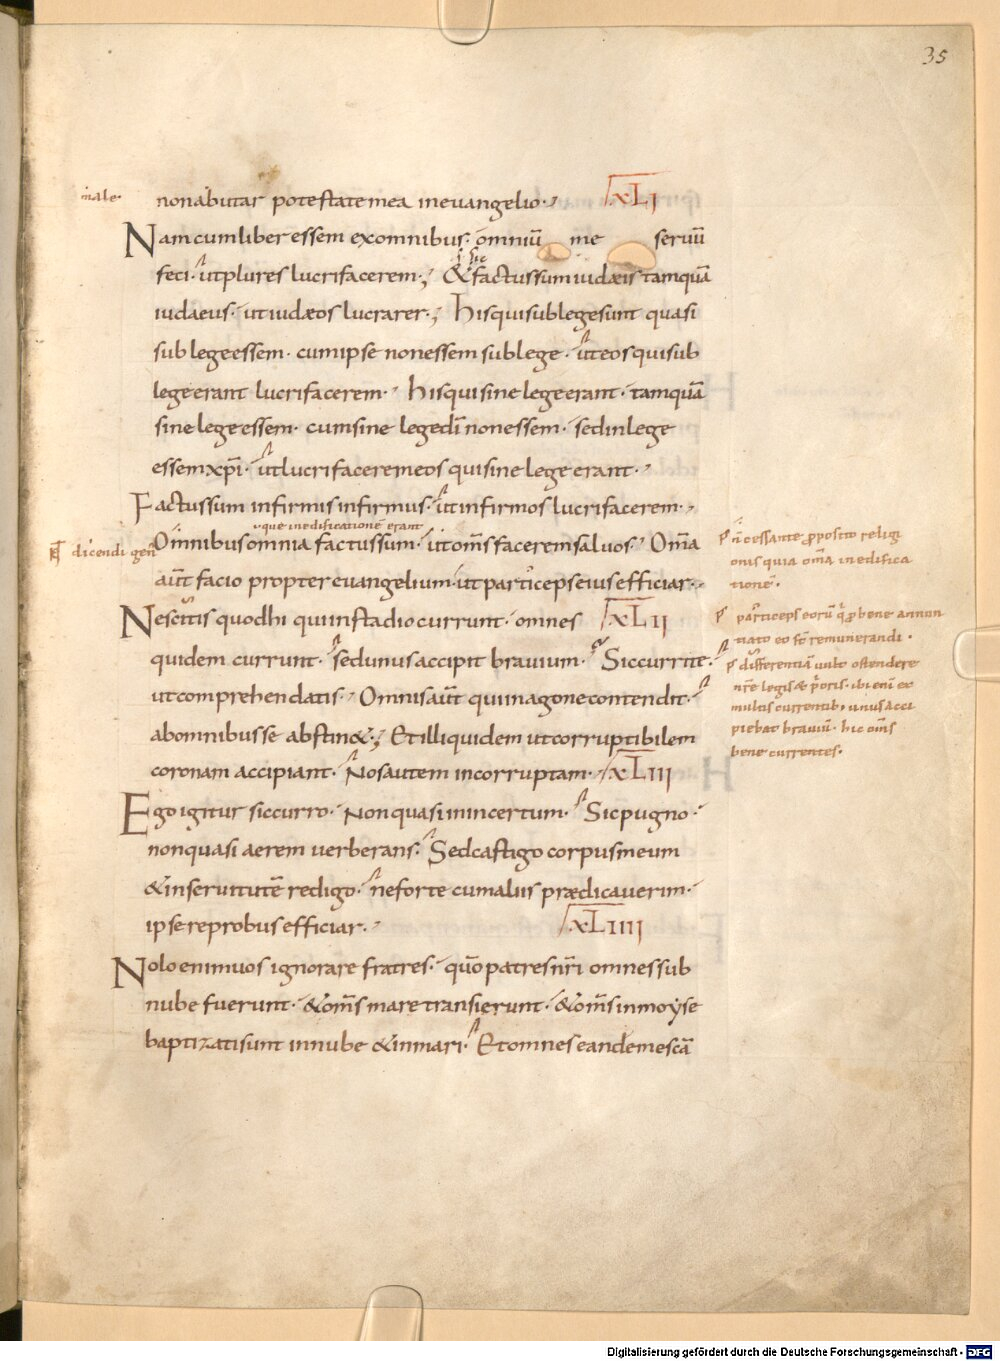 35
male·
non abutar potestate mea in evangelio· XLI
Nam cum liber essem ex omnibus· omniū me servū
feci· ut plures lucrifacerem·; & factus sum iudæis tamquā
iudaeus· ut iudæos lucrarer·; his qui sub lege sunt quasi
sub lege essem· cum ipse non essem sub lege· ut eos qui sub
lege erant lucrifacerem· his qui sine lege erant· tamquā
sine lege essem· cum sine lege dī non essem· sed in lege
essem xp̄i· ut lucrifacerem eos qui sine lege erant·
Factus sum infirmis infirmus· ut infirmos lucrifacerem·
que in edificationē erant
dicendi gen̄
Omnibus omnia factus sum· ut om̄s facerem salvos· Om̄a
aūt facio propter evangelium ut particeps eius efficiar·
Nescitis quod hi qui in stadio currunt· omnes XLII
quidem currunt· sed unus accipit bravium· Sic currite·
ut comprehendatis· Omnis aūt qui in agone contendit·
ab omnibus se abstin&·; Et illi quidem ut corruptibilem
coronam accipiant· Nos autem incorruptam· XLIII
Ego igitur sic curro· Non quasi in incertum· Sic pugno·
non quasi aerem verberans· Sed castigo corpus meum
& in servitutē redigo· ne forte cum aliis prædicaverim·
ipse reprobus efficiar· XLIIII
Nolo enim vos ignorare fratres· quō patres nr̄i omnes sub
nube fuerunt· & om̄s mare transierunt· & om̄s in moyse
baptizati sunt in nube & in mari· Et omnes eandem escā
n̄ cessante proposito relig
onis quia om̄a in edifica
tionē·
particeps eorū q̄ p bene annun
tiato eo s̄t remunerandi·
differentiā vult ostendere
nr̄e legis & p̄oris· ibi enī ex
multis currentib; unus acci
piebat braviū· hic om̄s
bene currentes·
Digitalisierung gefördert durch die Deutsche Forschungsgemeinschaft - DFG